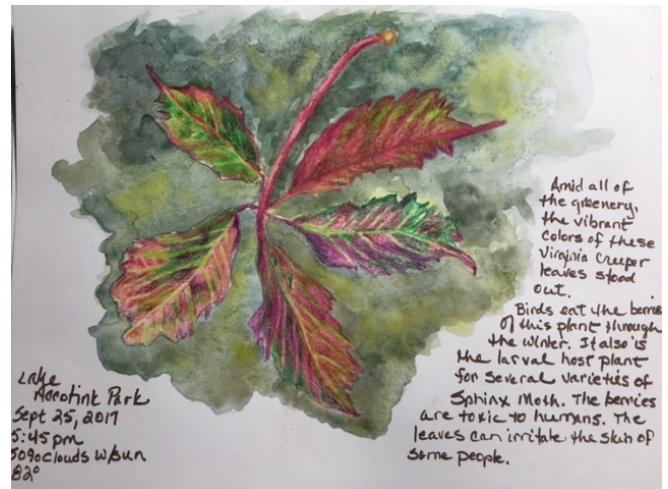 Amid all of
the greenery,
the vibrant
colors of these
Virginia Creeper
leaves stood
out.
Birds eat the berries
of this plant through
the winter. It also is
the larval host plant
for several varieties of
Sphinx Moth. The berries
are toxic to humans. The
leaves can irritate the skin of
some people.
Lake
Accotink Park
Sept 25, 2017
5:45 pm
50% clouds w/sun
82°